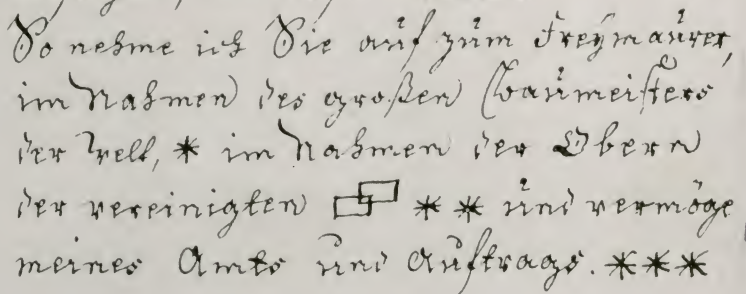 So nehme ich Sie auf zum Freymaurer,
im Nahmen des großen Baumeisters
der Welt, * im Nahmen der Obern
der vereinigten ▭▭ * * und vermöge
meines Amts und Auftrags. ***